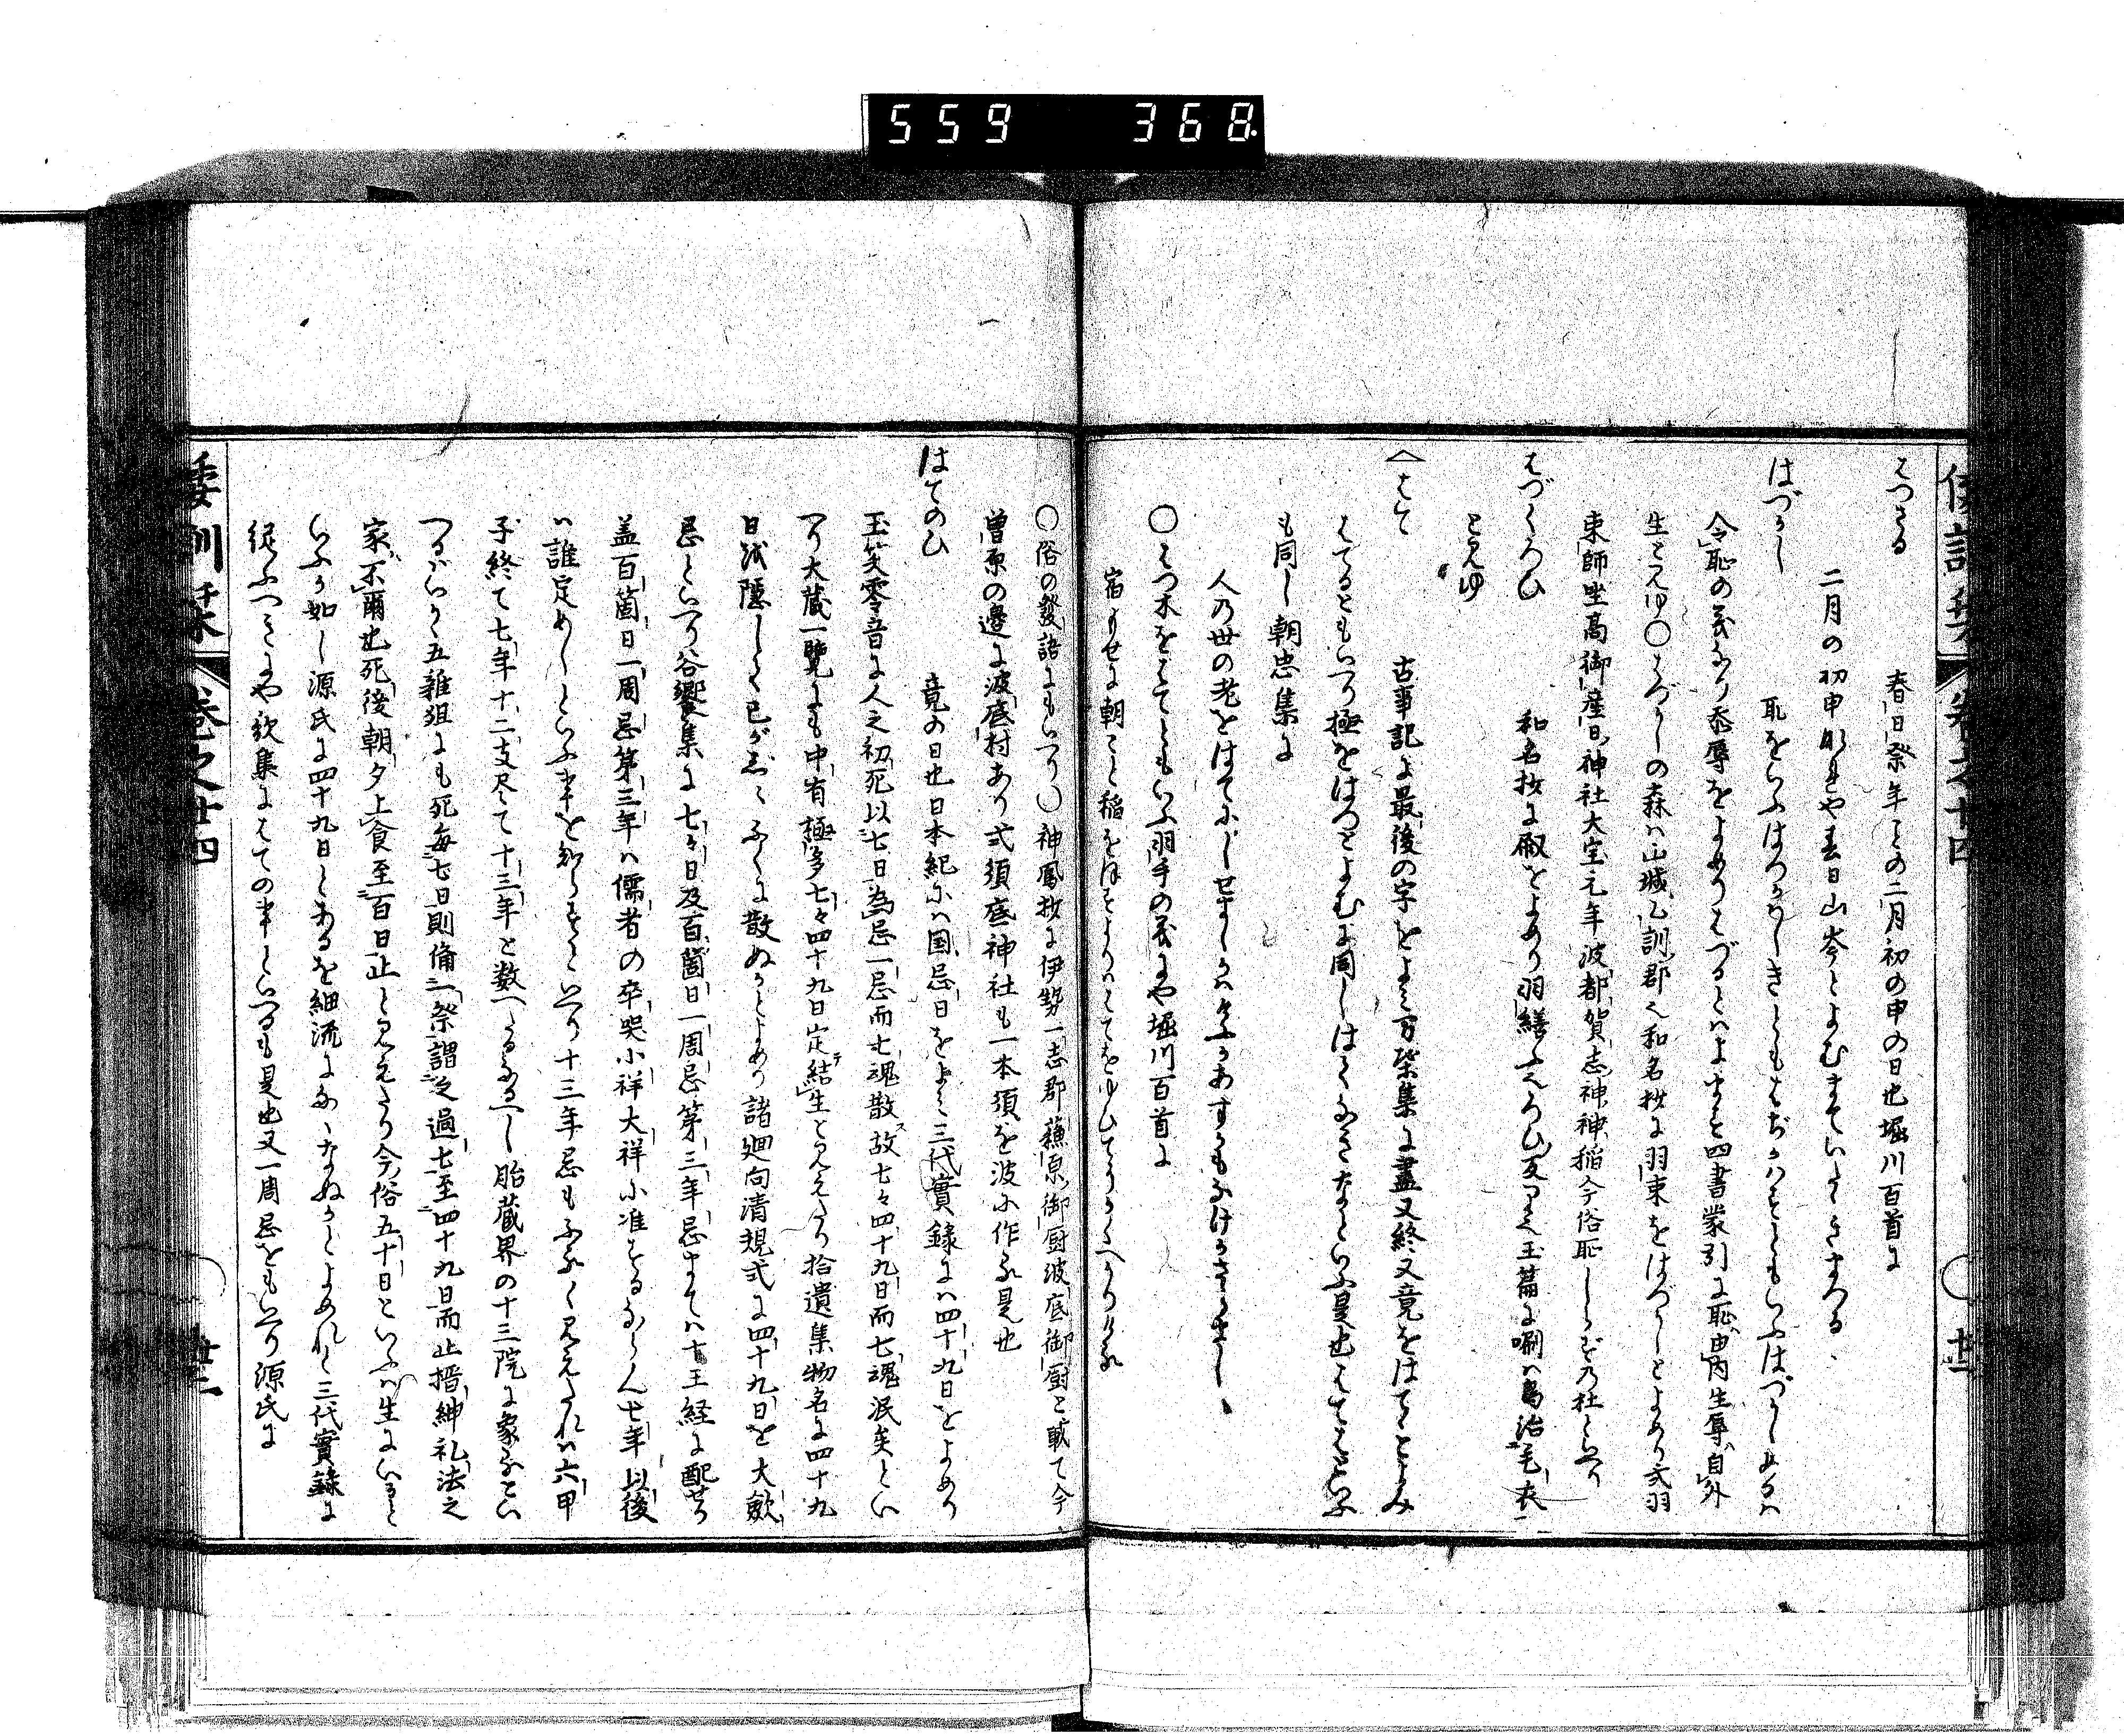 559 368
はつさる 春日祭年ことの二月初の申の日也堀川百首に
二月の初申なれや春日山峯とよむまていたゝきまつる
はづかし 恥をいふはつかしきともはぢかはすともいふはづかしめるハ
令恥の義なり忝辱をよめりはづるとハよせす四書蒙引に恥由内生辱自外
生とみゆ〇はづかしの森ハ山城乙訓郡也和名抄に羽束をはづかしとよめり式羽
束師坐高御産日神社大宝元年波都賀志神神稲今俗恥しらずの社といへり
はづくろひ 和名抄に㕞をよめり羽繕ふくろひ反り也玉篇に唰ハ鳥治毛衣
とみゆ
はて 古事記に最後の字をよみ万葉集に盡又終又竟をはてとよみ
はてるともいへり極をはつとよむに同しはてなきなといふ是也はてはといふ
も同し朝忠集に
人乃世の老をはてにしせましかはけふかあすかもなけかさらまし
〇はつ木をはてともいふ羽手の義にや堀川百首に
宿もせに朝こと稲をほすよりハはてをゆひてそかくへかりける
〇俗の發語にもいへり〇神鳳抄に伊勢一志郡蘓原御厨波底御厨と載て今
曽原の邊に波底村あり式須底神社も一本須を波に作る是也
はてのひ 竟の日也日本紀にハ国忌日をよみ三代實録にハ四十九日をよめり
玉笑零音に人之初死以七日為忌一忌而七魂散故七々四十九日而七魂泯矣とい
へり大蔵一覧にも中有極多七々四十九日定結生とみえたり拾遺集物名に四十九
日
忌といへり谷響集に七々日及百箇日一周忌第三年忌まてハ十王経に配せり
盖百箇日一周忌第三年ハ儒者の卒哭小祥大祥に准するならん七年以後
ハ誰定めしといふ事を知らすといへり十三年忌もふるくみえたれハ六甲
子終て七年十二支尽て十三年と数へたるなるへし胎蔵界の十三院に象るとい
へるハいかゝ五雑俎にも死毎七日則備一祭謂之過七至四十九日而止搢紳礼法之
家不爾也死後朝夕上食至百日止とみえたり今俗五十日といふハ生にいみと
いふか如し源氏に四十九日とあるを細流になゝなぬかとよめれと三代實録に
従ふへきにや歌集にはての事といへるも是也又一周忌をもいへり源氏に
倭訓栞 巻之廿四